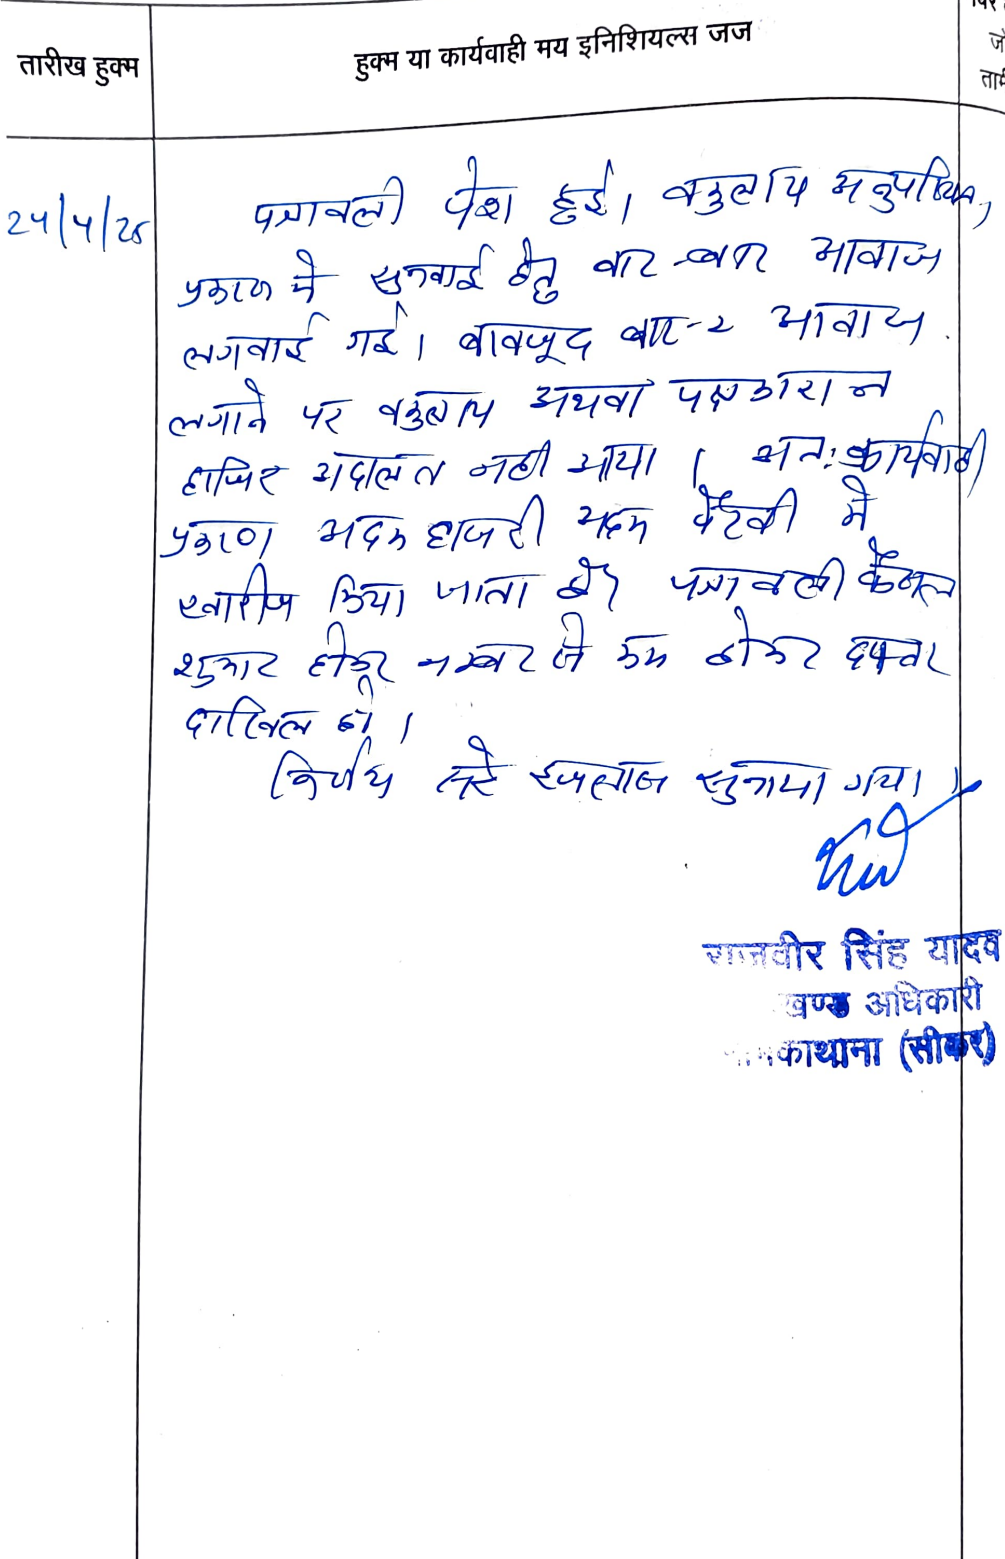 तारीख हुक्म
हुक्म या कार्यवाही मय इनिशियल्स जज
24/4/25
पत्रावली पेश हुई। वकुलाय अनुपस्थित,
प्रकरण में सुनवाई हेतु बार-बार आवाज
लगवाई गई। बावजूद बार-2 आवाज
लगाने पर वकुलाय अथवा पक्षकारान
हाजिर अदालत नहीं आया। अतः कार्यवाही
प्रकरण अदम हाजरी अदम पैरवी में
खारीज किया जाता है। पत्रावली फैसल
शुमार होकर नम्बर से कम होकर दफ्तर
दाखिल हो।
निर्णय सरे इजलास सुनाया गया।
राजवीर सिंह यादव
खण्ड अधिकारी
काथाना (सीकर)